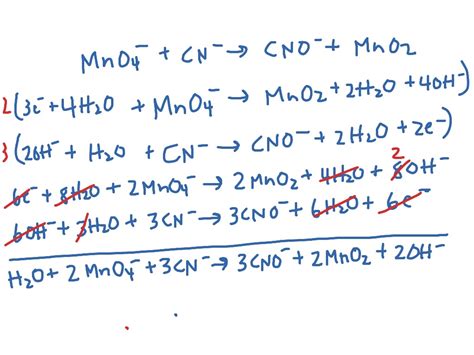 MnO4⁻ + CN⁻ → CNO⁻ + MnO2
2(3e⁻ + 4H2O + MnO4⁻ → MnO2 + 2H2O + 4OH⁻)
3(2OH⁻ + H2O + CN⁻ → CNO⁻ + 2H2O + 2e⁻)
6e⁻ + 8H2O + 2MnO4⁻ → 2MnO2 + 4H2O + 8 2 OH⁻
6OH⁻ + 3H2O + 3CN⁻ → 3CNO⁻ + 6H2O + 6e⁻
H2O + 2MnO4⁻ + 3CN⁻ → 3CNO⁻ + 2MnO2 + 2OH⁻